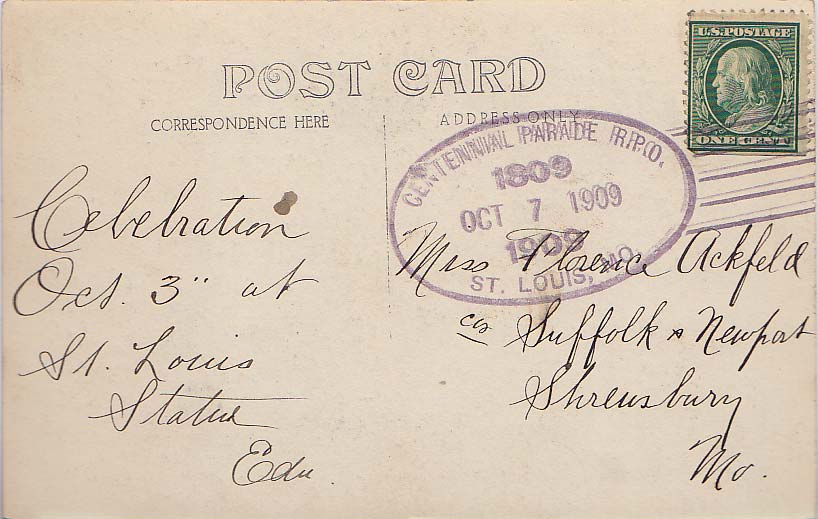 U.S. POSTAGE
ONE CENT
POST CARD
CORRESPONDENCE HERE
ADDRESS ONLY
CENTENNIAL PARADE R.P.O.
1809
OCT 7 1909
1909
ST. LOUIS, MO.
Celebration
Oct. 3" at
St. Louis
Statue
Edu.
Miss Florence Ackfeld
Suffolk & Newport
Shrewsbury
Mo.